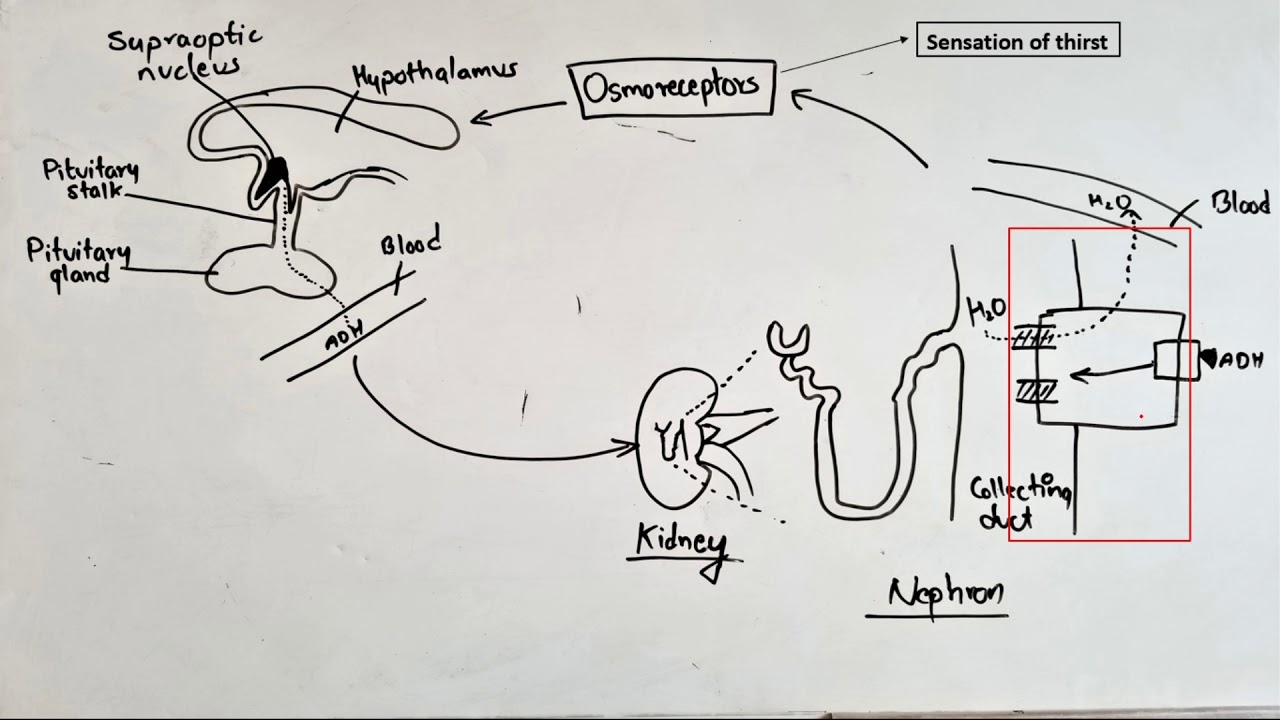 Supraoptic
nucleus
Hypothalamus
Osmoreceptors
Sensation of thirst
Pituitary
stalk
Pituitary
gland
Blood
ADH
H₂O
Blood
H₂O
ADH
Collecting
duct
Kidney
Nephron